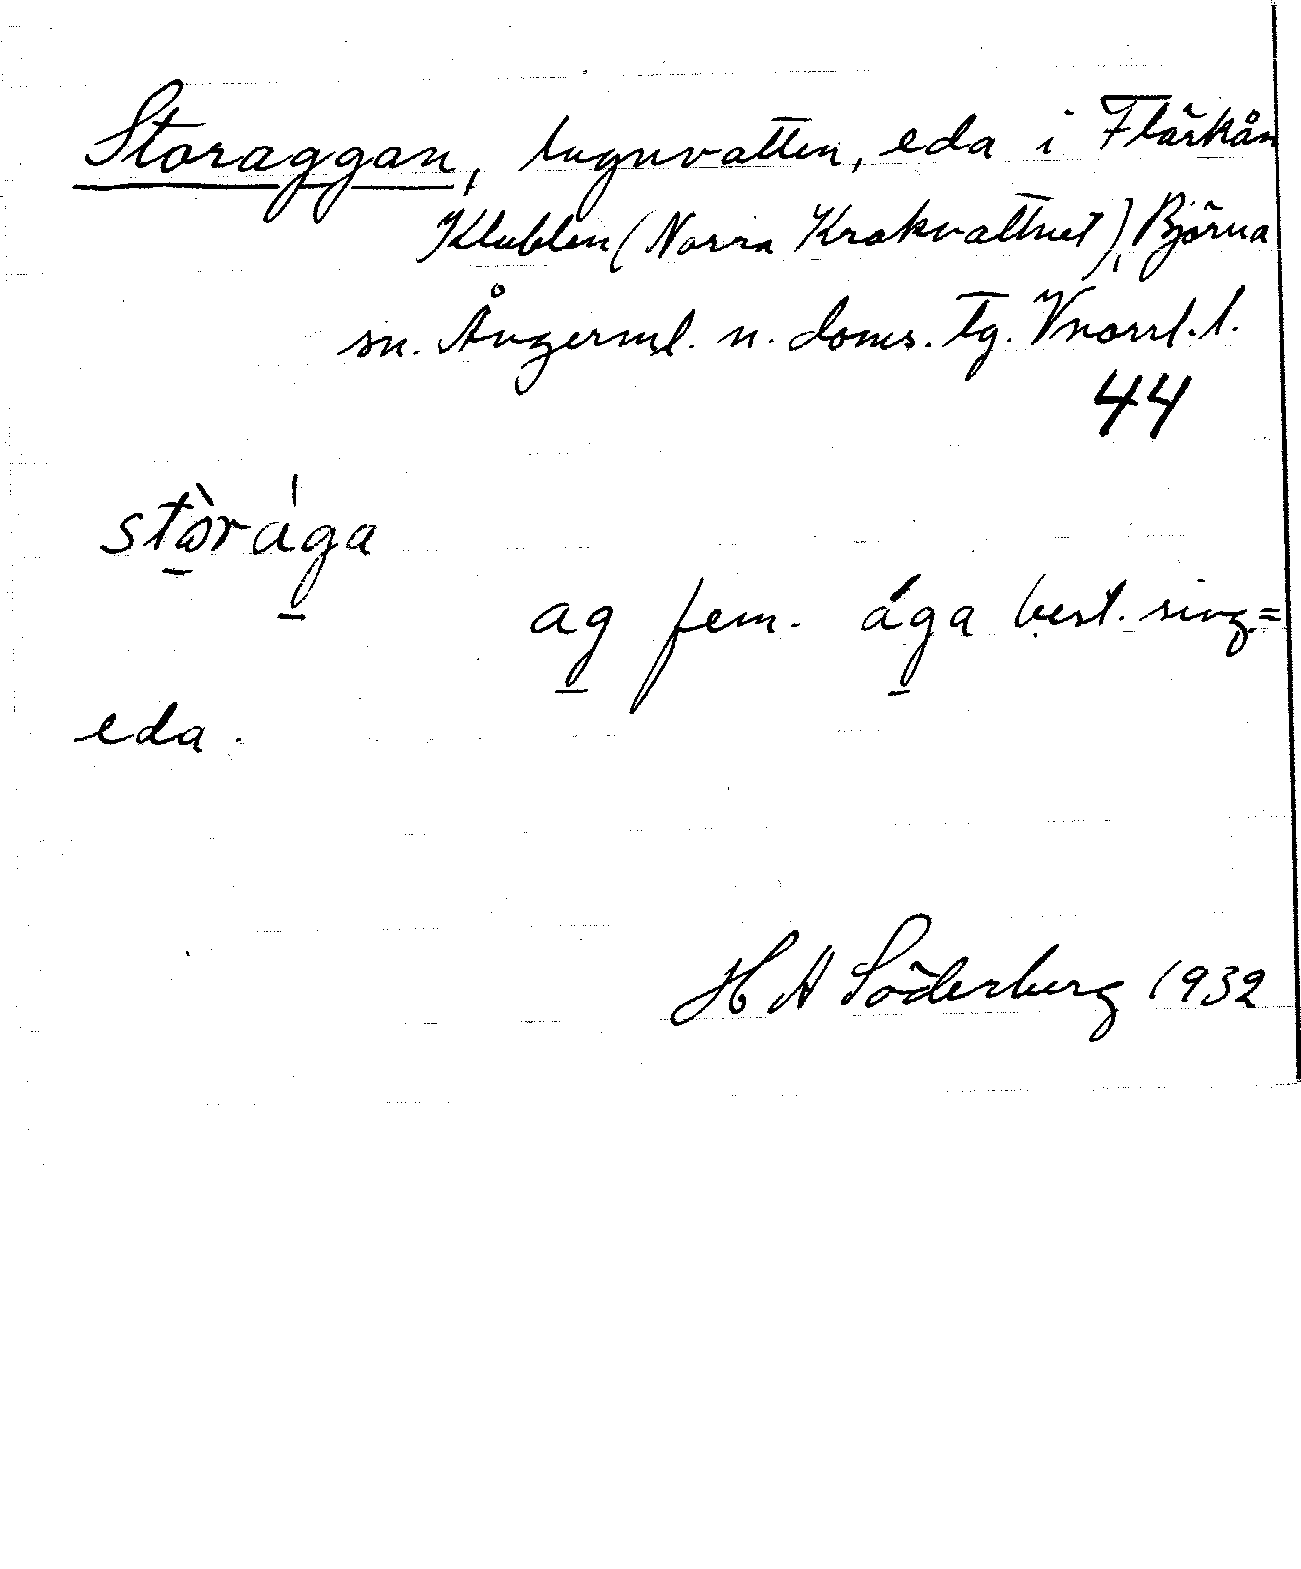 Storaggan, lugnvatten, eda i Flärkån
Klubben (Norra Krokvattnet), Björna
sn. Ångerml. n. doms. tg. Vnorrl. l.
44
stòrága
ag fem. ága best. sing =
eda.
H A Söderberg 1932